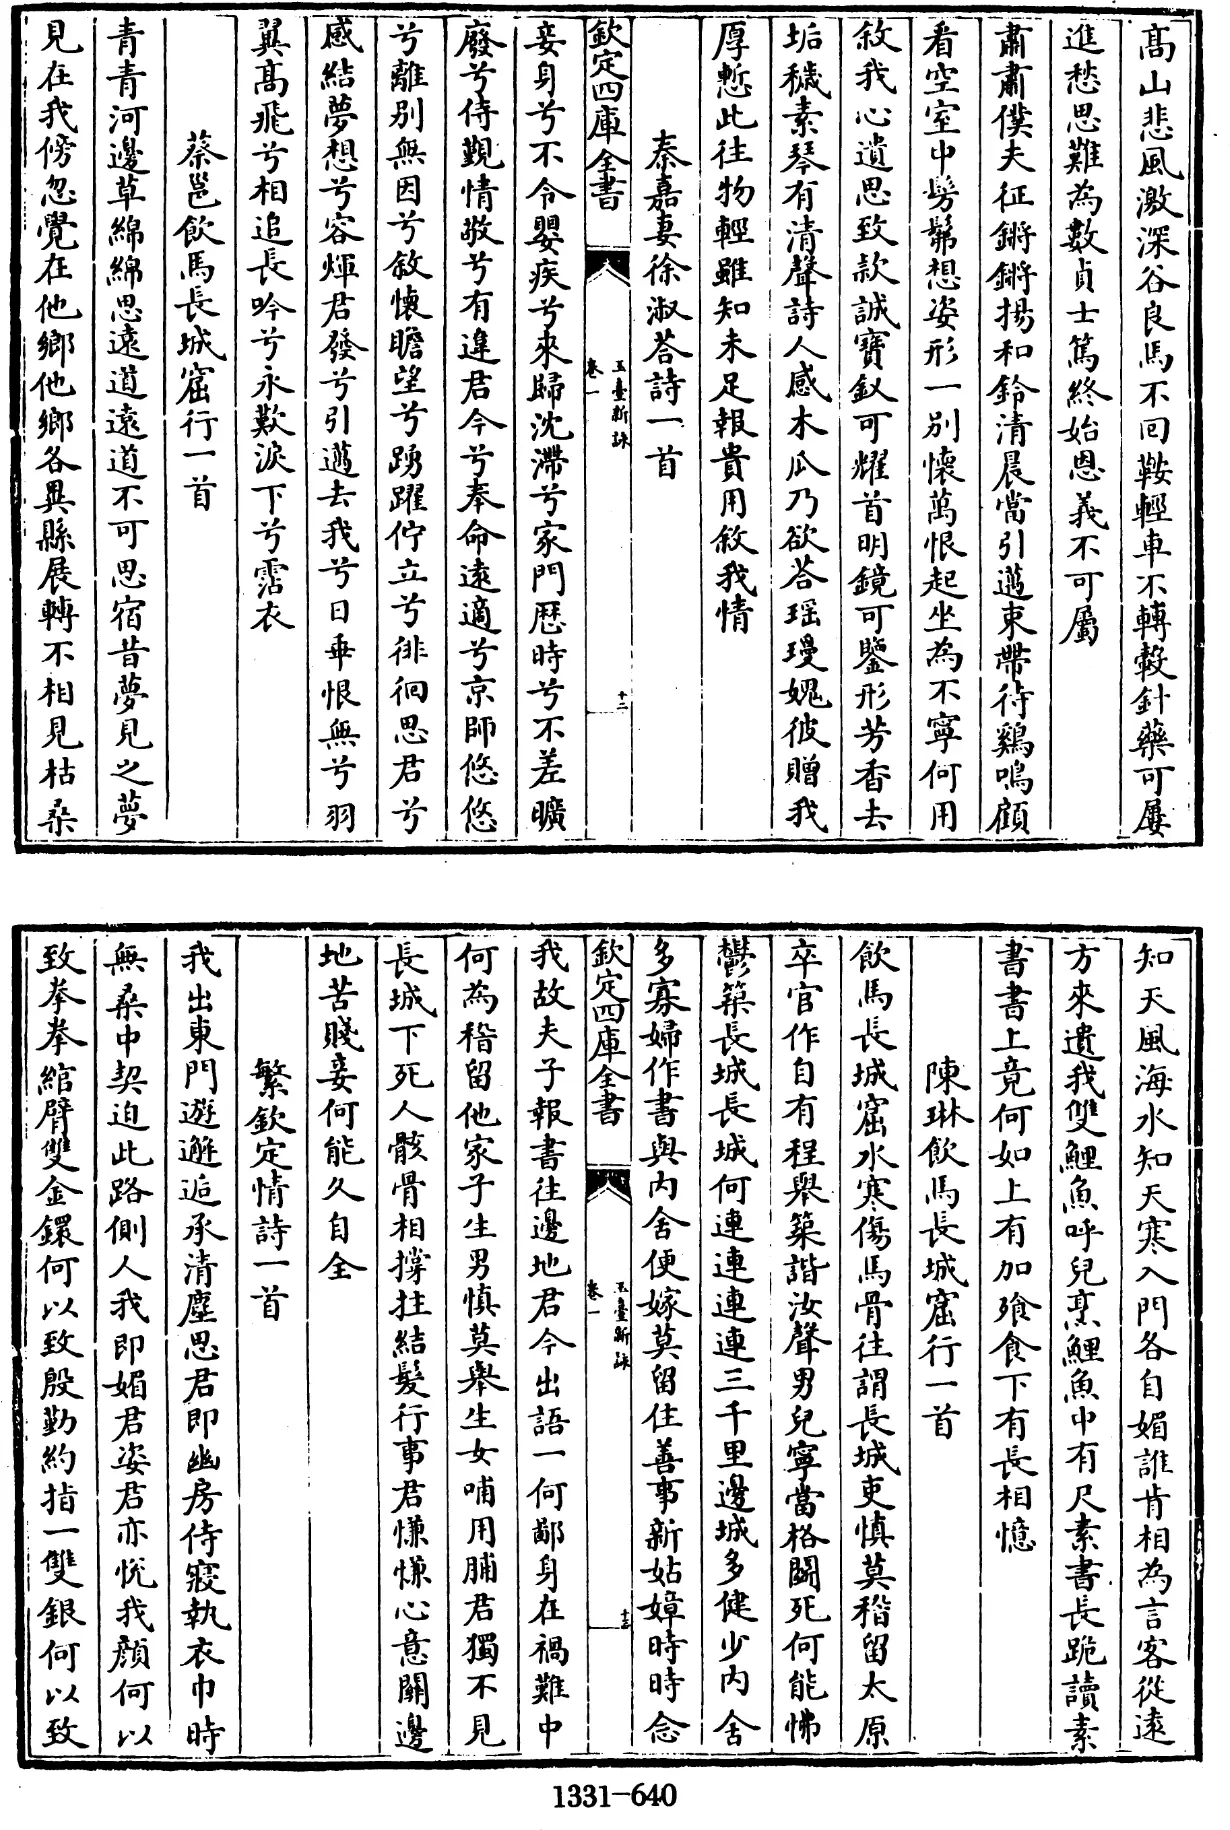 髙山悲風激深谷良馬不回鞍輕車不轉轂針藥可屢
進愁思難為數貞士篤終始恩義不可屬
肅肅僕夫征鏘鏘揚和鈴清晨當引邁束帶待鷄鳴顧
看空室中髣髴想姿形一別懷萬恨起坐為不寧何用
敘我心遺思致款誠寳釵可耀首明鏡可鑒形芳香去
垢穢素琴有清聲詩人感木瓜乃欲荅瑶瓊媿彼贈我
厚慙此往物輕雖知未足報貴用敘我情
秦嘉妻徐淑荅詩一首
欽定四庫全書
玉臺新詠
卷一
十二
妾身兮不令嬰疾兮來歸沈滯兮家門歴時兮不差曠
廢兮侍觀情敬兮有違君今兮奉命逺適兮京師悠悠
兮離别無因兮敘懷瞻望兮踴躍佇立兮徘徊思君兮
感結夢想兮容煇君發兮引邁去我兮日乖恨無兮羽
翼髙飛兮相追長吟兮永歎淚下兮霑衣
蔡邕飲馬長城窟行一首
青青河邊草綿綿思逺道逺道不可思宿昔夢見之夢
見在我傍忽覺在他鄉他鄉各異縣展轉不相見枯桑
知天風海水知天寒入門各自媚誰肯相為言客從逺
方來遺我雙鯉魚呼兒烹鯉魚中有尺素書長跪讀素
書書上竟何如上有加飱食下有長相憶
陳琳飲馬長城窟行一首
飲馬長城窟水寒傷馬骨往謂長城吏慎莫稽留太原
卒官作自有程舉築諧汝聲男兒寧當格鬭死何能怫
鬱築長城長城何連連連連三千里邊城多健少内舍
多寡婦作書與内舍便嫁莫留住善事新姑嫜時時念
欽定四庫全書
玉臺新詠
卷一
十三
我故夫子報書往邊地君今出語一何鄙身在禍難中
何為稽留他家子生男慎莫舉生女哺用脯君獨不見
長城下死人骸骨相撐拄結髮行事君慊慊心意關邊
地苦賤妾何能久自全
繁欽定情詩一首
我出東門遊邂逅承清塵思君即幽房侍寢執衣巾時
無桑中契迫此路側人我即媚君姿君亦悦我顔何以
致拳拳綰臂雙金鐶何以致殷勤約指一雙銀何以致
1331-640